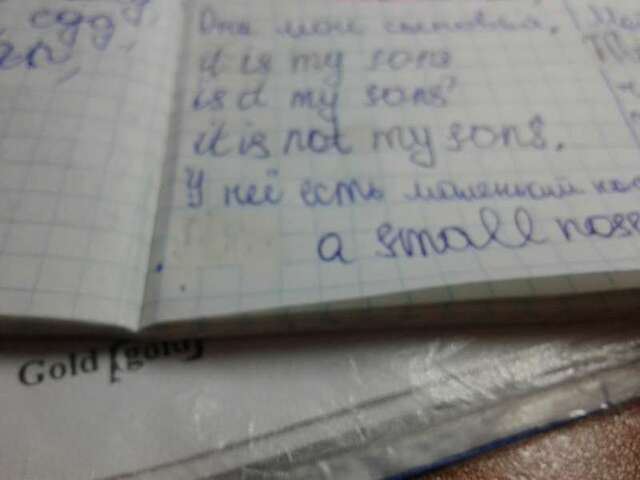 egg
Они мои сыновья.
it is my sons
is it my sons?
it is not my sons.
У неё есть маленький
a small nose
Gold [gould]